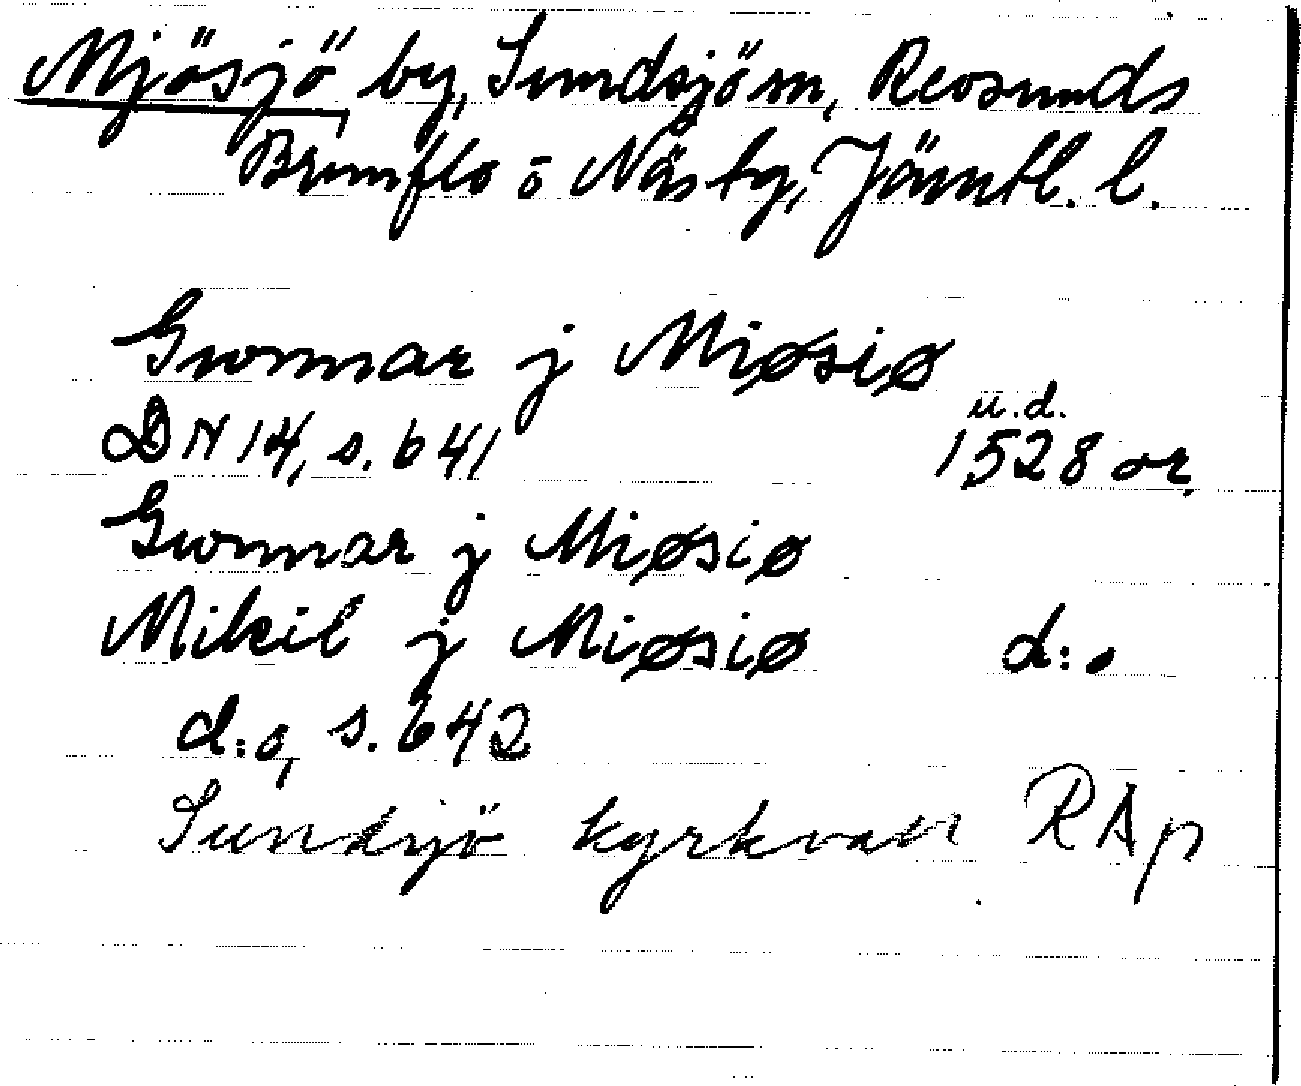 Mjösjö by, Sundsjö sn, Revsunds
Brunflo o Näs tg, Jämtl. l.
Gunnar j Miøsiø
u.d.
DN 14, s. 641 1528 or.
Gunnar j Miøsiø
Mikil j Miøsiø d:o
d:o, s. 642
Sundsjö kyrkvall RAp